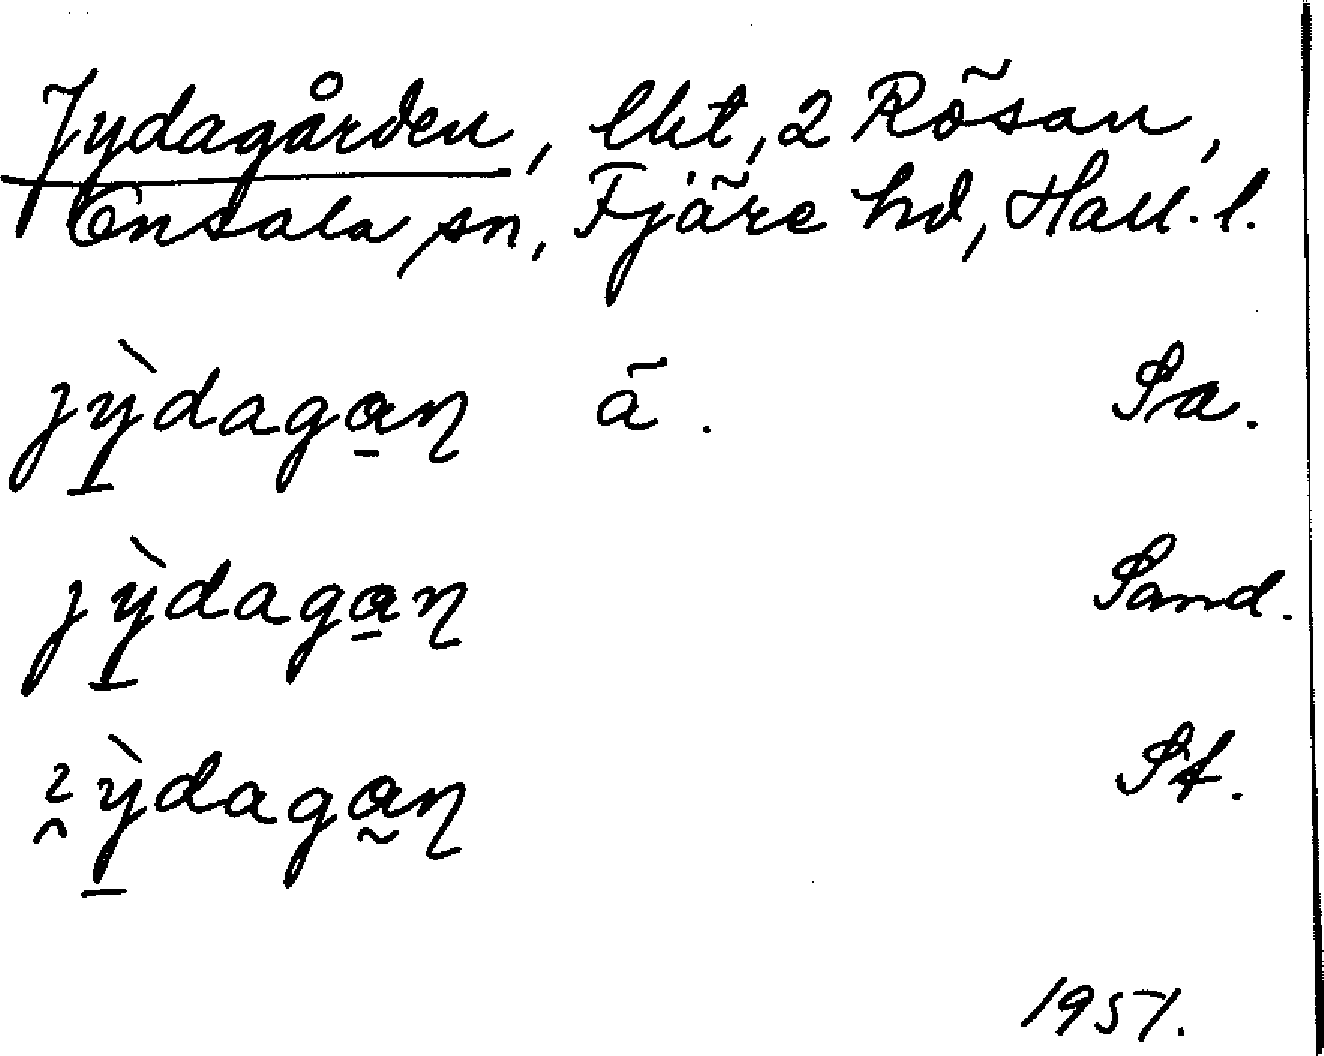 Jydagården, lht, 2 Rösan,
Onsala sn, Fjäre hd, Hall. l.
jỳdagan ä. Sa.
jỳdagan Sand.
ỳdagan St.
1951.